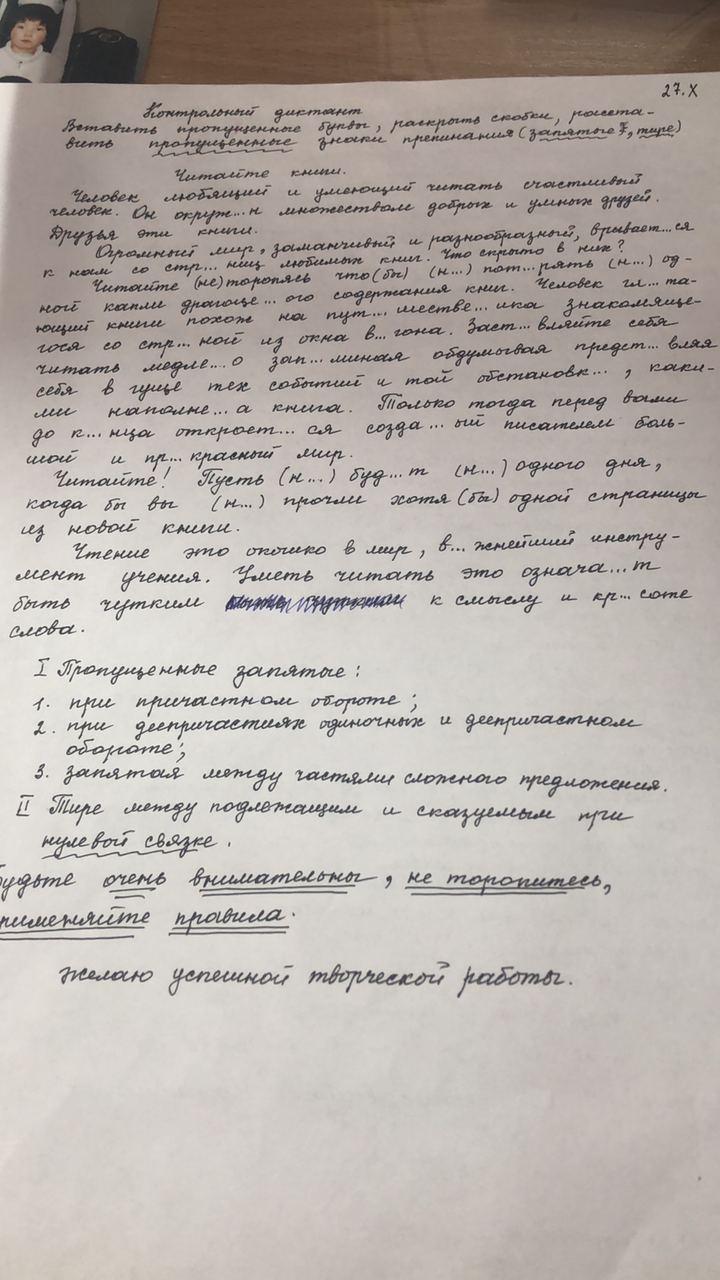 27.X
Контрольный диктант
Вставить пропущенные буквы, раскрыть скобки, расста-
вить пропущенные знаки препинания (запятые, тире)
Читайте книги.
Человек любящий и умеющий читать счастливый
человек. Он окруж...н множеством добрых и умных друзей.
Друзья эти книги.
Огромный мир, заманчивый и разнообразный, врывает...ся
к нам со стр...ниц любимых книг. Что скрыто в них?
Читайте (не)торопясь что(бы) (н...) пот...рять (н...) од-
ной капли драгоце...ого содержания книг. Человек гл...та-
ющий книги похож на пут...шестве...ика знакомяще-
гося со стр...ной из окна в...гона. Заст...вляйте себя
читать медле...о зап...миная обдумывая предст...вляя
себя в гуще тех событий и той обстановк..., каки-
ми наполне...а книга. Только тогда перед вами
до к...нца откроет...ся созда...ый писателем боль-
шой и пр...красный мир.
Читайте! Пусть (н...) буд...т (н...) одного дня,
когда бы вы (н...) прочли хотя(бы) одной страницы
из новой книги.
Чтение это окошко в мир, в...жнейший инстру-
мент учения. Уметь читать это означа...т
быть чутким к смыслу и кр...соте
слова.
I Пропущенные запятые:
1. при причастном обороте;
2. при деепричастиях одиночных и деепричастном
обороте;
3. запятая между частями сложного предложения.
II Тире между подлежащим и сказуемым при
нулевой связке.
будьте очень внимательны, не торопитесь,
рименяйте правила.
Желаю успешной творческой работы.